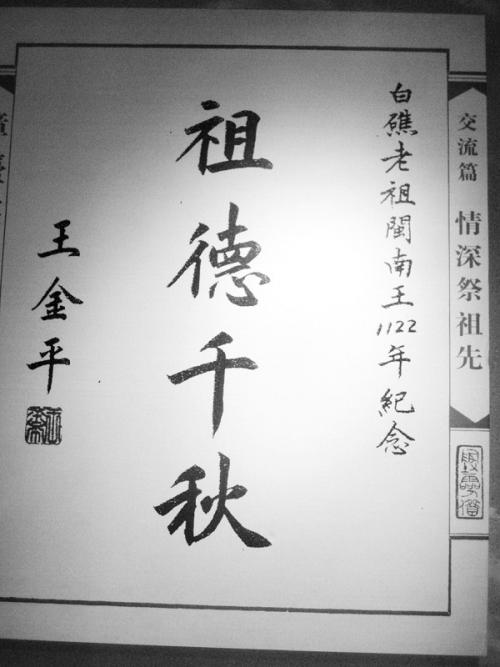 交流篇 情深祭祖先
白礁老祖閩南王1122年紀念
祖德千秋
王金平